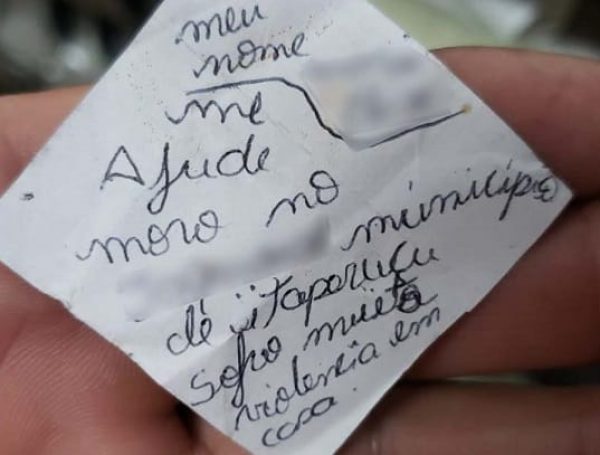 meu
nome
me
Ajude
moro no
município
de itaporucu
sofro muita
violencia em
casa.